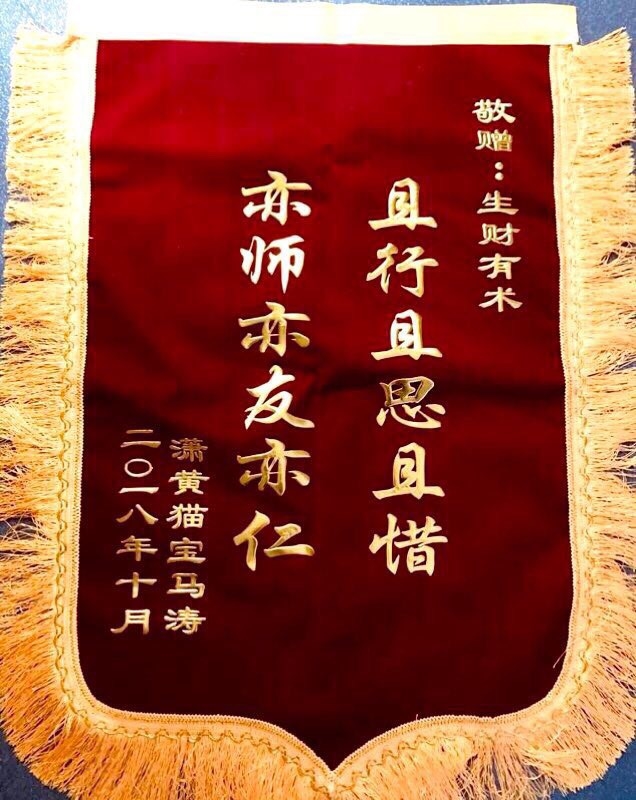 敬赠：生财有术
且行且思且惜
亦师亦友亦仁
潇黄猫宝马涛
二〇一八年十月